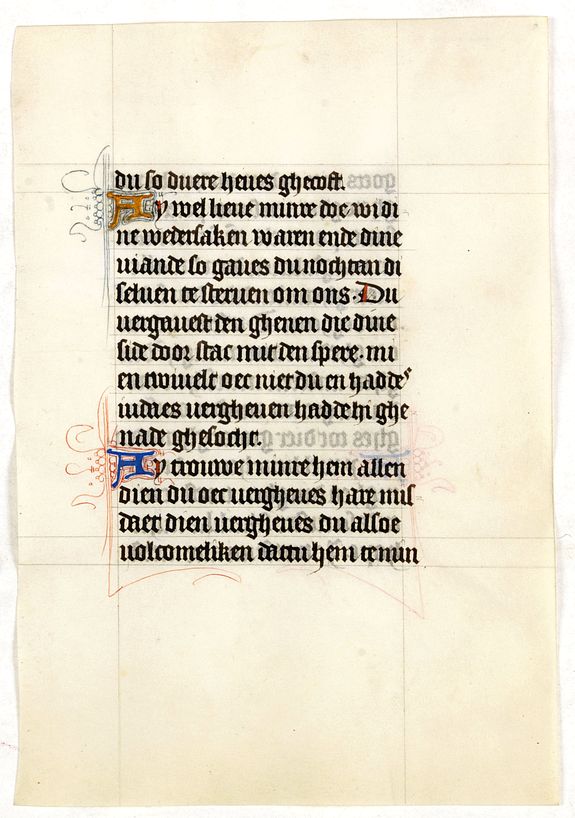 du so duere heues ghecost.
Ay wel lieue minre doe wi di
ne wedersaken waren ende dine
uiande so gaues du nochtan di
seluen te steruen om ons. Du
uergauest den ghenen die dine
side door stac mit den spere. mi
en twiuelt oec niet du en hadde
iudaes uergheuen hadde hi ghe
nade ghesocht.
Ay trouwe minre hem allen
dien du oec uergheues hare mis
daet dien uergheues du alsoe
uolcomeliken dattu hem te min